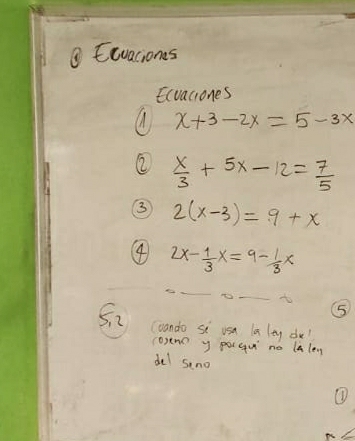 ① Ecuaciones
Ecuaciones
① x+3-2x=5-3x
② x/3 + 5x-12= 7/5
③ 2(x-3)= 9 + x
④ 2x-1/3x=9-1/3x
5,2 Cuando se usa la ley del
⑤
coseno y porque no la ley
del seno
①